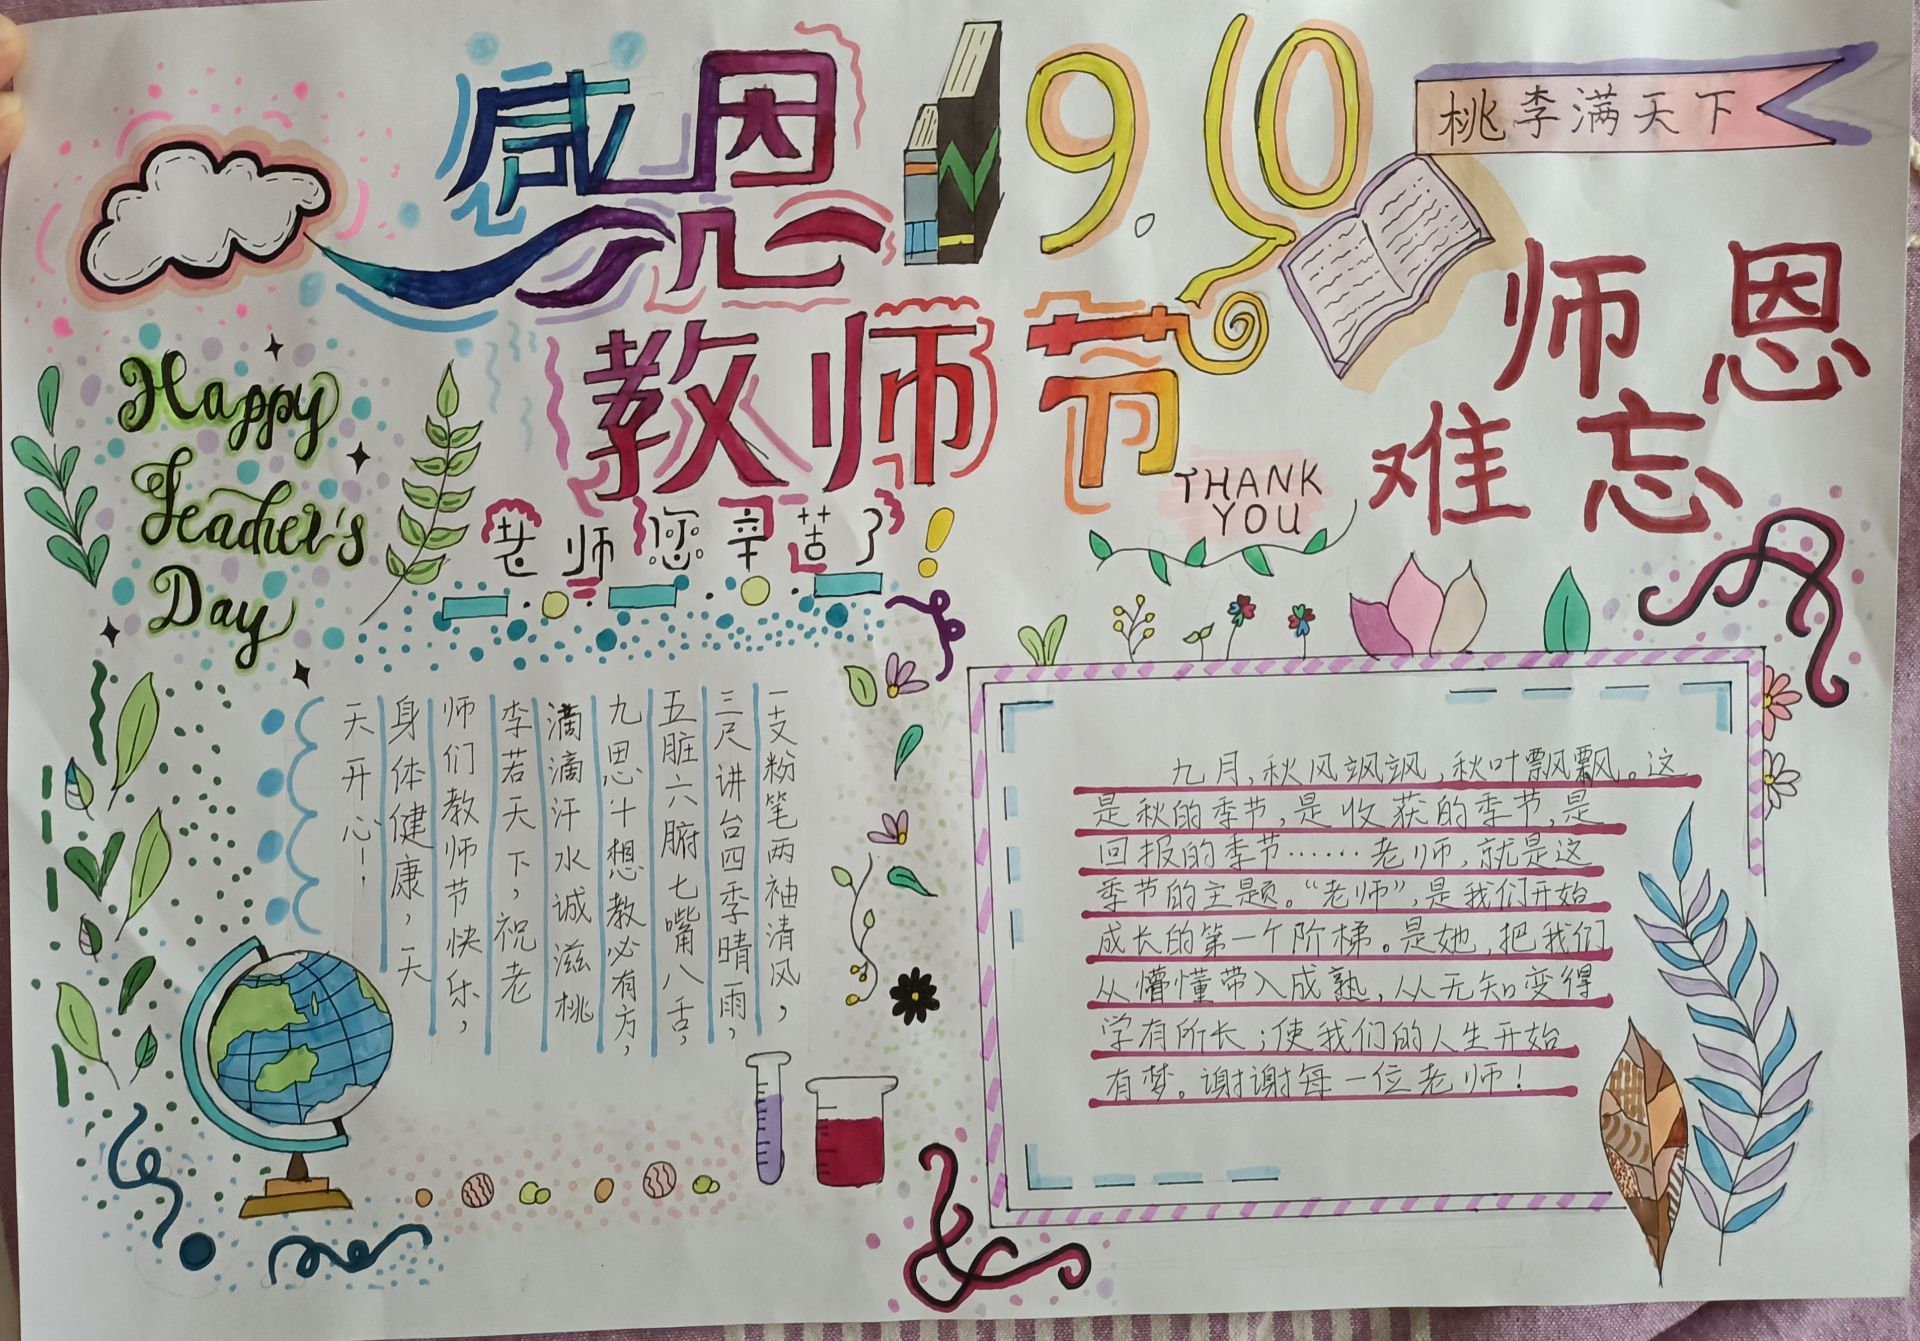 感恩
9.10
桃李满天下
教师节
师恩
难忘
Happy
Teacher's
Day
THANK
YOU
老师您辛苦了!
一支粉笔两袖清风,
三尺讲台四季晴雨,
五脏六腑七嘴八舌,
九思十想教必有方,
滴滴汗水诚滋桃
李若天下,祝老
师们教师节快乐,
身体健康,天
天开心!
九月,秋风飒飒,秋叶飘飘。这
是秋的季节,是收获的季节,是
回报的季节……老师,就是这
季节的主题。“老师”,是我们开始
成长的第一个阶梯。是她,把我们
从懵懂带入成熟,从无知变得
学有所长;使我们的人生开始
有梦。谢谢每一位老师!